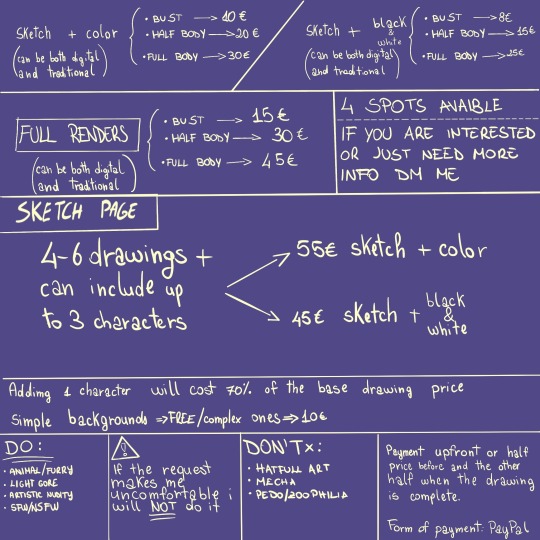 Sketch + color
(can be both digital
and traditional)
• BUST → 10€
• HALF BODY → 20€
• FULL BODY → 30€
Sketch + black
&
white
(can be both digital
and traditional)
• BUST → 8€
• HALF BODY → 15€
• FULL BODY → 25€
FULL RENDERS
(can be both digital
and traditional)
• BUST → 15€
• HALF BODY → 30€
• FULL BODY → 45€
4 SPOTS AVAIBLE
IF YOU ARE INTERESTED
OR JUST NEED MORE
INFO DM ME
SKETCH PAGE
4-6 drawings +
can include up
to 3 characters
55€ sketch + color
45€ sketch + black
&
white
Adding 1 character will cost 70% of the base drawing price
Simple backgrounds ⇒ FREE/complex ones ⇒ 10€
DO:
• ANIMAL/FURRY
• LIGHT GORE
• ARTISTIC NUDITY
• SFW/NSFW
!
If the request
makes me
uncomfortable i
will NOT do it
DON'T x:
• HATFULL ART
• MECHA
• PEDO/ZOOPHILIA
Payment upfront or half
price before and the other
half when the drawing
is complete.
Form of payment: PayPal